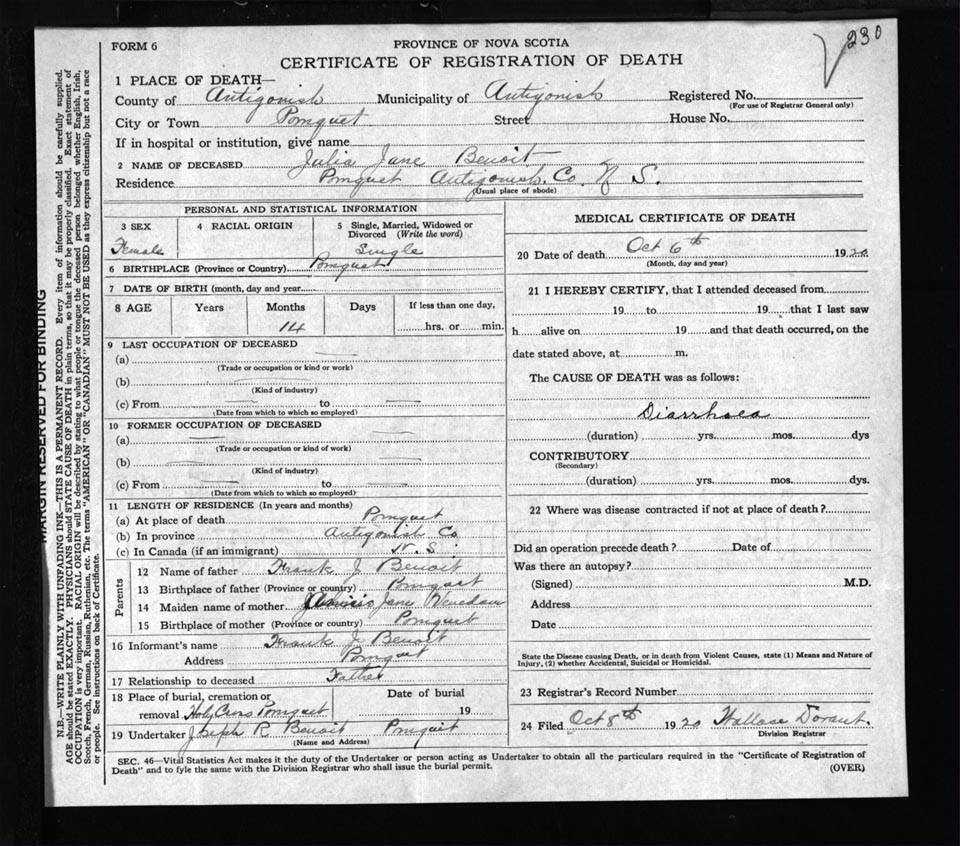 230
FORM 6
PROVINCE OF NOVA SCOTIA
CERTIFICATE OF REGISTRATION OF DEATH
1 PLACE OF DEATH—
County of Antigonish Municipality of Antigonish Registered No.
(For use of Registrar General only)
City or Town Pomquet Street House No.
If in hospital or institution, give name
2 NAME OF DECEASED Julia Jane Benoit
Residence Pomquet Antigonish Co. N S.
(Usual place of abode)
PERSONAL AND STATISTICAL INFORMATION
3 SEX 4 RACIAL ORIGIN 5 Single, Married, Widowed or Divorced (Write the word)
Female Single
6 BIRTHPLACE (Province or Country) Pomquet
7 DATE OF BIRTH (month, day and year)
8 AGE Years Months Days If less than one day,
14 hrs. or min.
9 LAST OCCUPATION OF DECEASED
(a)
(Trade or occupation or kind or work)
(b)
(Kind of industry)
(c) From to
(Date from which to which so employed)
10 FORMER OCCUPATION OF DECEASED
(a)
(Trade or occupation or kind of work)
(b)
(Kind of industry)
(c) From to
(Date from which to which so employed)
11 LENGTH OF RESIDENCE (In years and months)
(a) At place of death Pomquet
(b) In province Antigonish Co
(c) In Canada (if an immigrant) N. S.
Parents
12 Name of father Frank J Benoit
13 Birthplace of father (Province or country) Pomquet
14 Maiden name of mother Jane
15 Birthplace of mother (Province or country) Pomquet
16 Informant's name Frank J Benoit
Address Pomquet
17 Relationship to deceased Father
18 Place of burial, cremation or Date of burial
removal Holy Cross Pomquet 19
19 Undertaker Joseph R Benoit Pomquet
(Name and Address)
MEDICAL CERTIFICATE OF DEATH
20 Date of death Oct 6th 1920
(Month, day and year)
21 I HEREBY CERTIFY, that I attended deceased from
19 to 19 that I last saw
h alive on 19 and that death occurred, on the
date stated above, at m.
The CAUSE OF DEATH was as follows:
Diarrhoea
(duration) yrs. mos. dys
CONTRIBUTORY
(Secondary)
(duration) yrs. mos. dys.
22 Where was disease contracted if not at place of death?
Did an operation precede death? Date of
Was there an autopsy?
(Signed) M.D.
Address
Date
State the Disease causing Death, or in death from Violent Causes, state (1) Means and Nature of
Injury, (2) whether Accidental, Suicidal or Homicidal.
23 Registrar's Record Number
24 Filed Oct 8th 1920 Wallace
Division Registrar
SEC. 46—Vital Statistics Act makes it the duty of the Undertaker or person acting as Undertaker to obtain all the particulars required in the "Certificate of Registration of
Death" and to fyle the same with the Division Registrar who shall issue the burial permit.
(OVER)
MARGIN RESERVED FOR BINDING
N.B.—WRITE PLAINLY WITH UNFADING INK—THIS IS A PERMANENT RECORD. Every item of information should be carefully supplied.
AGE should be stated EXACTLY. PHYSICIANS should STATE CAUSE OF DEATH in plain terms, so that it may be properly classified. Exact statement of
OCCUPATION is very important. RACIAL ORIGIN will be described by stating to what people or tongue the deceased person belonged whether English, Irish,
Scotch, French, German, Russian, Ruthenian, etc. The terms "AMERICAN" OR "CANADIAN" MUST NOT BE USED as they express citizenship but not a race
or people. See instructions on back of Certificate.